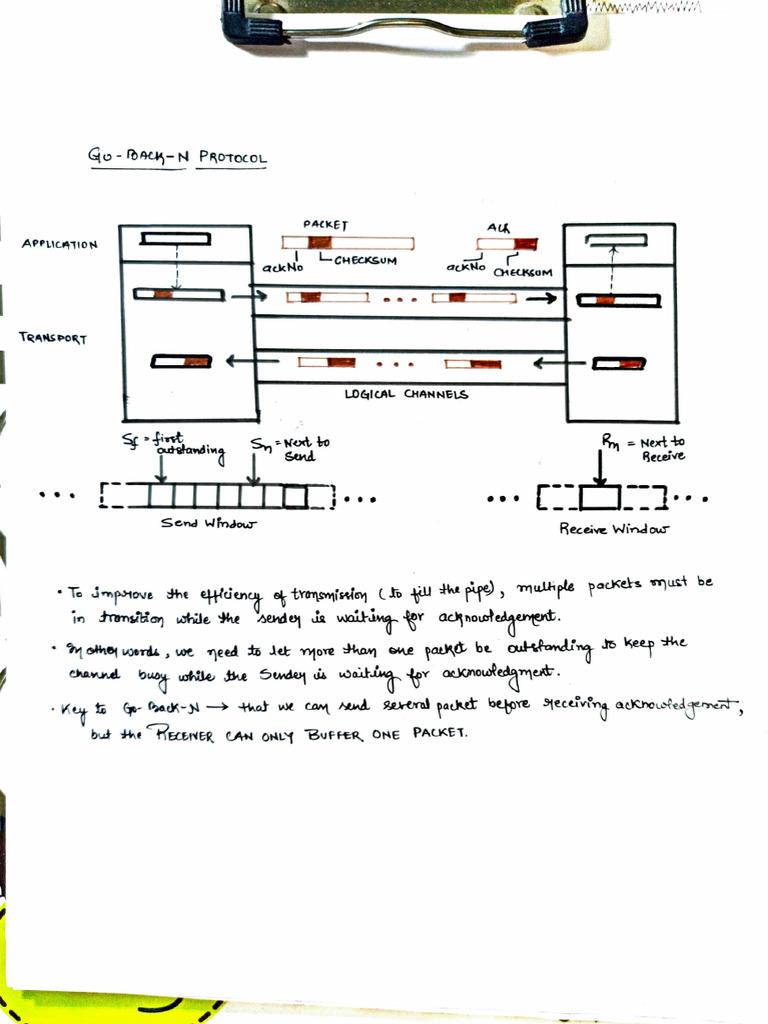 GO-BACK-N PROTOCOL
PACKET
ACK
APPLICATION
ackNo
CHECKSUM
ackNo
CHECKSUM
TRANSPORT
LOGICAL CHANNELS
Sf = first
outstanding
Sn = Next to
Send
Rn = Next to
Receive
Send Window
Receive Window
• To improve the efficiency of transmission (to fill the pipe), multiple packets must be
in transition while the sender is waiting for acknowledgement.
• In other words, we need to let more than one packet be outstanding to keep the
channel busy while the Sender is waiting for acknowledgment.
• Key to Go-Back-N → that we can send several packet before receiving acknowledgement,
but the RECEIVER CAN ONLY BUFFER ONE PACKET.